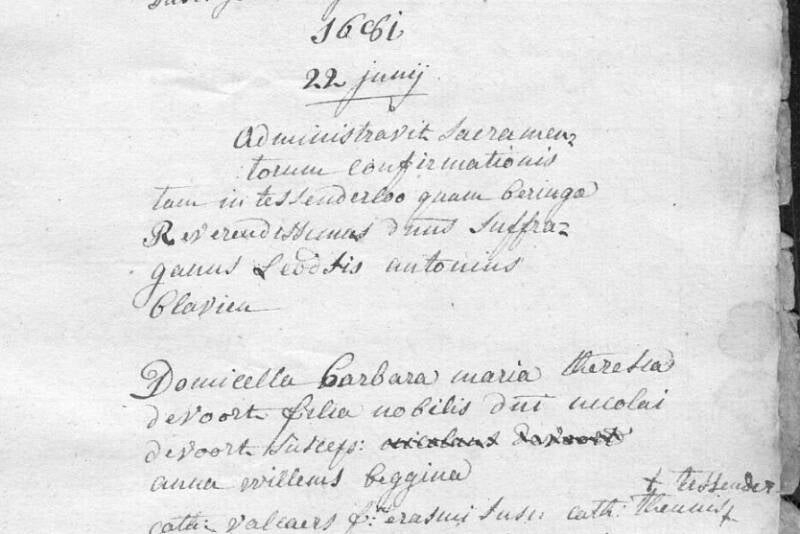 1661
22 junij
Administravit Sacramen=
torum confirmationis
tam in tessenderloo quam beringa
Reverendissimus dnus Suffra=
ganus Leodsis antonius
blavier
Domicella barbara maria theresia
devoort filia nobilis dni nicolai
devoort suscep: nicolaus devoort
anna willems beggina
† tessender
cath: valcaers f: erasmi Sus: cath: theunis †